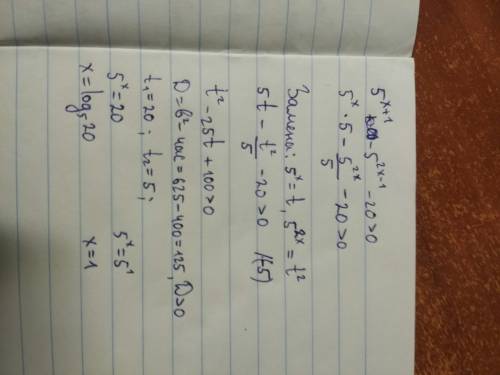 5^{x+1} - 5^{2x-1} - 20 > 0
5^x · 5 - 5^{2x}/5 - 20 > 0
Замена: 5^x = t, 5^{2x} = t^2
5t - t^2/5 - 20 > 0 /(·5)
t^2 - 25t + 100 > 0
D = b^2 - 4ac = 625 - 400 = 125, D > 0
t_1 = 20; t_2 = 5;
5^x = 20 5^x = 5^1
x = log_5 20 x = 1